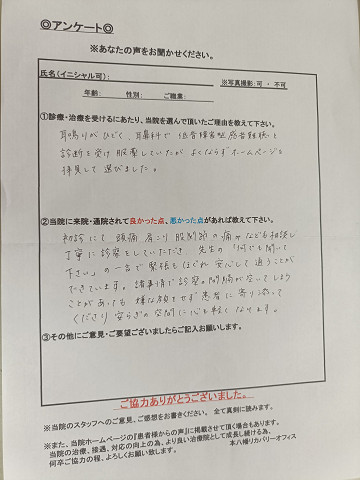 ◎アンケート◎
※あなたの声をお聞かせください。
氏名(イニシャル可): ※写真撮影:可 ・ 不可
年齢: 性別: ご職業:
①診療・治療を受けるにあたり、当院を選んで頂いたご理由を教えて下さい。
耳鳴りがひどく、耳鼻科で 低音障害型感音難聴と
診断を受け 服薬していたが よくならず ホームページを
拝見して 選びました。
②当院に来院・通院されて良かった点、悪かった点があれば教えて下さい。
初診にて 頭痛 肩こり 股関節の痛みなども相談し
丁寧に診察をしていただき 先生の「何でも聞いて
下さい」の一言で 緊張もほぐれ 安心して通うことが
できています。諸事情で診察の間隔が空いてしまう
ことがあっても 嫌な顔をせず 患者に寄り添って
くださり 安らぎの空間に心も軽くなります。
③その他にご意見・ご要望ございましたらご記入お願いします。
ご協力ありがとうございました。
※当院のスタッフへのご意見、ご感想をお書きください。 全て真剣に読みます。
※また、当院ホームページの『患者様からの声』に掲載させて頂く場合もあります。
当院の治療、接遇、対応の向上の為、より良い治療院として成長し続ける為、
何卒ご協力の程、よろしくお願い致します。 本八幡リカバリーオフィス